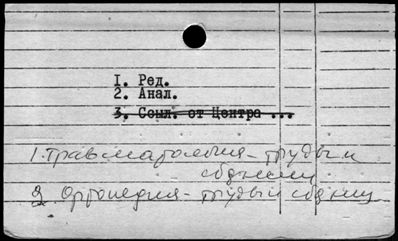 1. Ред.
2. Анал.
3. Ссыл. от Центра ...
1. Травматология - труды и
сборники
2. Ортопедия - труды и сборники